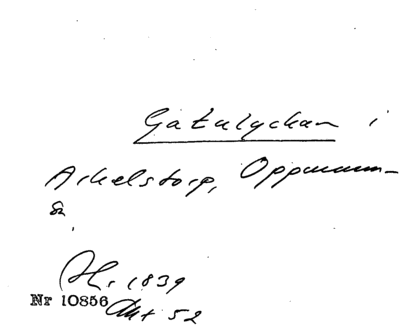 Gatulyckan i
Arkelstorp, Oppmanna-
sn.
1839
Nr 10856 Akt 52